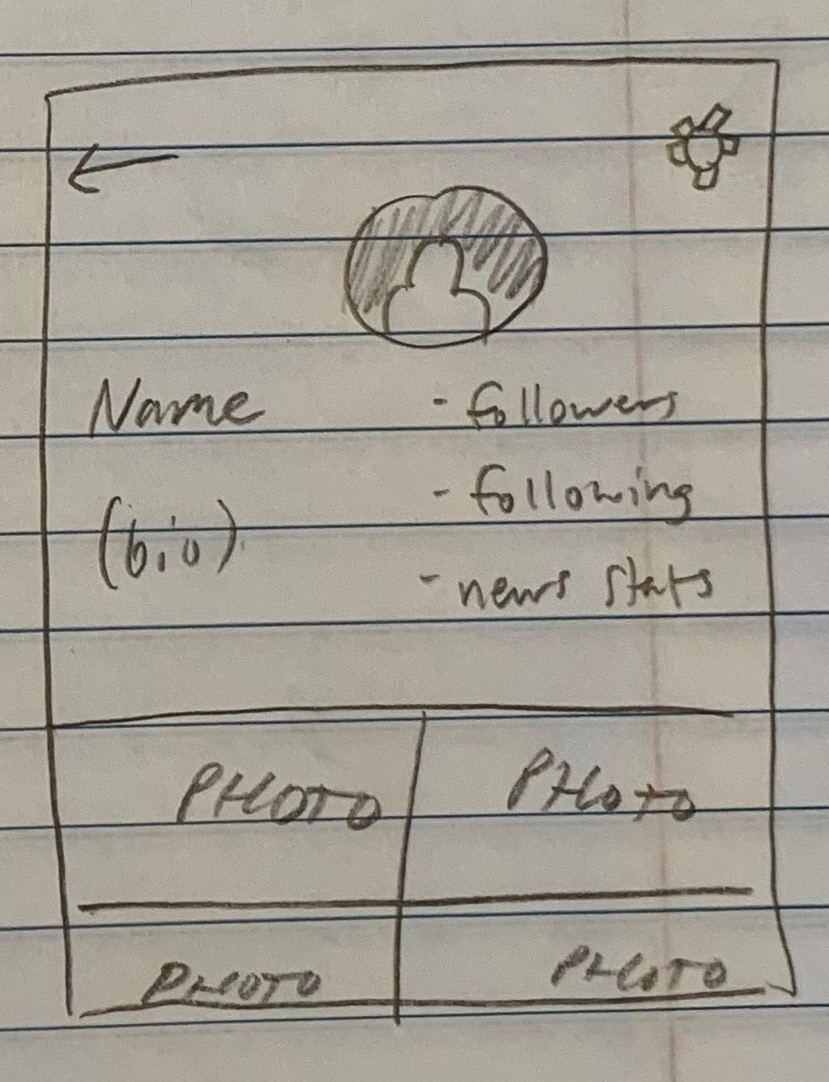 Name
- followers
- following
(bio)
- news stats
PHOTO
PHOTO
PHOTO
PHOTO